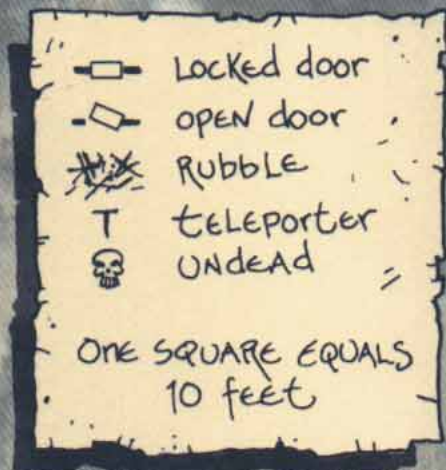 Locked door
open door
Rubble
T teleporter
undead
One square equals
10 feet